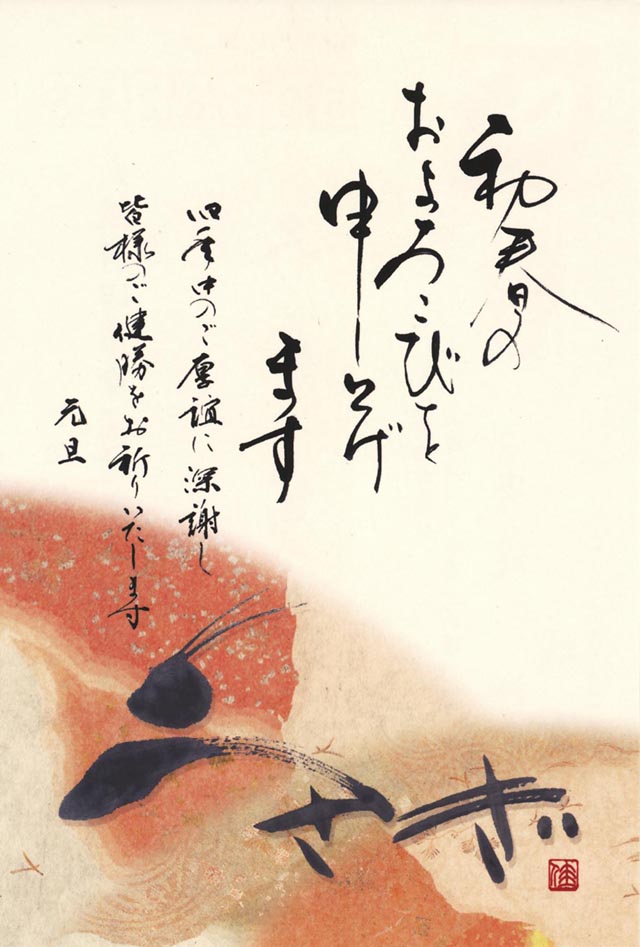 初春の
およろこびを
申し上げ
ます
旧年中のご厚誼に深謝し
皆様のご健勝をお祈りいたします
元旦
うさぎ
佳